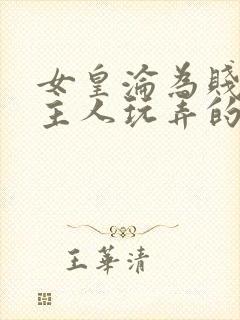 女皇淪為賤
主人玩弄的
王華清